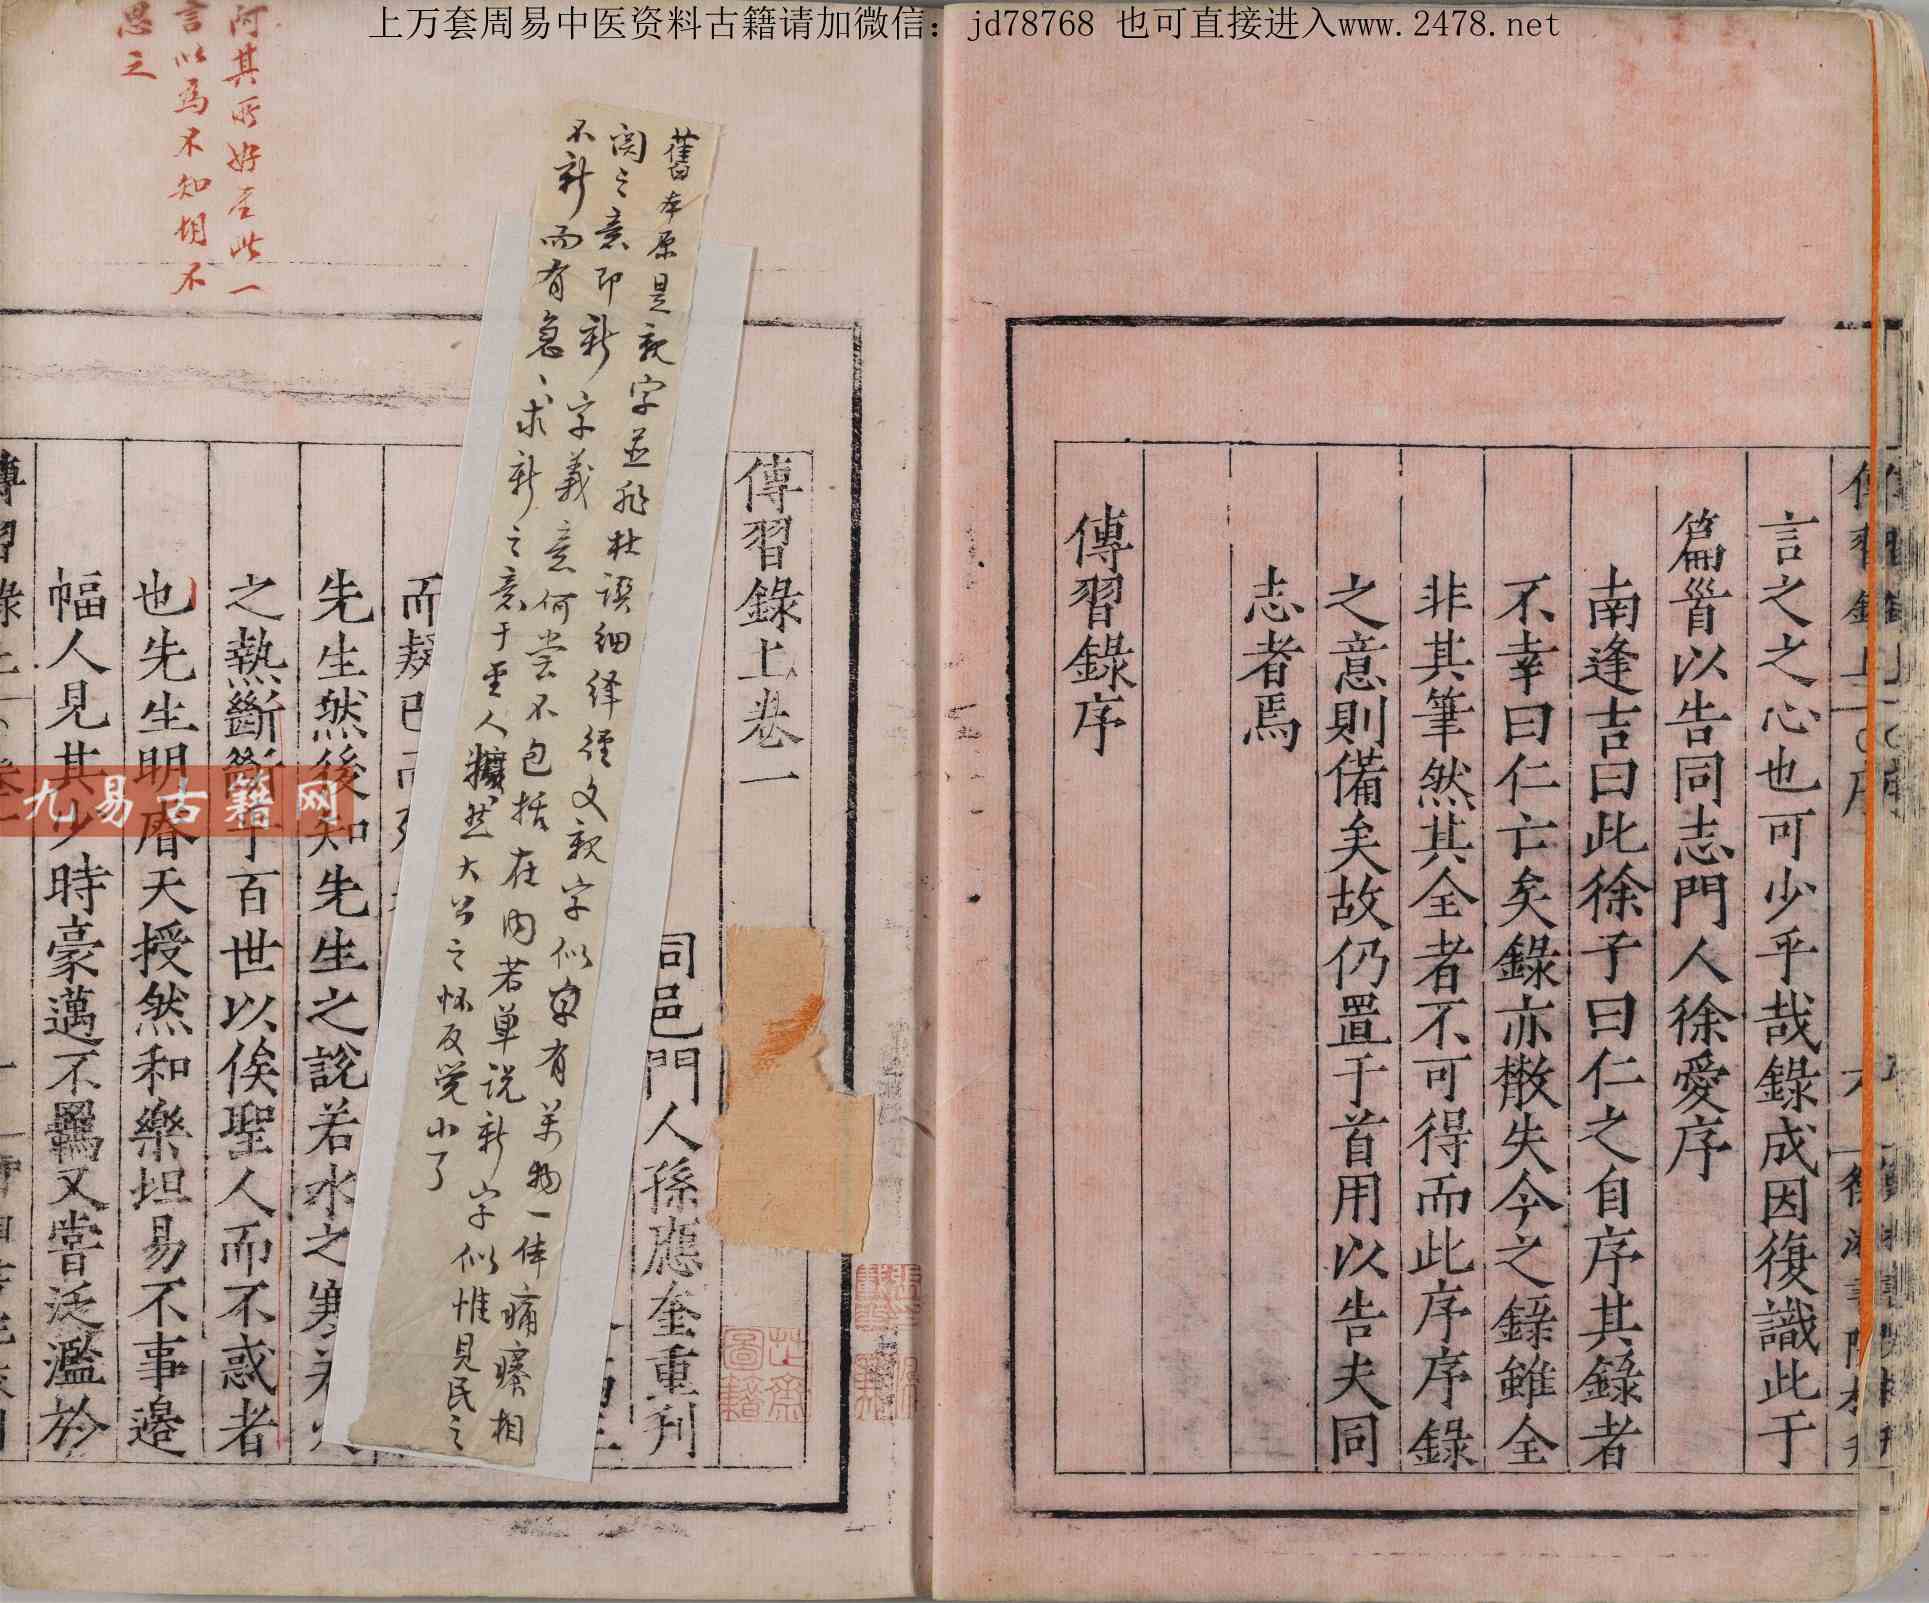 上万套周易中医资料古籍请加微信：jd78768 也可直接进入www.2478.net
言之之心也可少乎哉錄成因復識此于
篇首以告同志門人徐愛序
南逢吉曰此徐子曰仁之自序其錄者
不幸曰仁亡矣錄亦散失今之錄雖全
非其筆然其全者不可得而此序序錄
之意則備矣故仍置于首用以告夫同
志者焉
傳習錄序
傳習錄上卷一
同邑門人孫應奎重刋
舊本原是親字並非杜譔細繹經文親字似寓有萬物一体痛癢相
関之意即新字義意何尝不包括在内若单说新字似惟見民之
不新而有急、求新之意于聖人擴然大公之怀反觉小了
而疑已而
先生然後知先生之說若水之寒若火
之熱斷斷乎百世以俟聖人而不惑者
也先生明睿天授然和樂坦易不事邊
幅人見其少時豪邁不羈又嘗泛濫於
阿其所好者此一
言以為不知胡不
思之
芷齋圖籍
九易古籍网